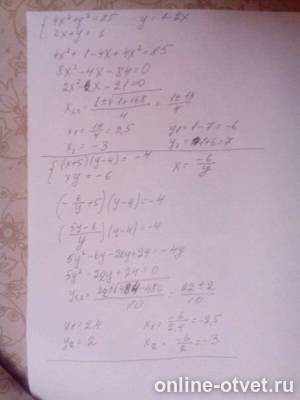 { 4x² + y² = 85     y = 1 - 2x
{ 2x + y = 1
4x² + 1 - 4x + 4x² = 85
8x² - 4x - 84 = 0
2x² - x - 21 = 0
x₁,₂ = (1 ± √1+168)/4 = (1 ± 13)/4
x₁ = 14/4 = 3,5     y₁ = 1 - 7 = -6
x₂ = -3     y₂ = 1 + 6 = 7
{ (x+5)(y-4) = -4     x = -6/y
{ xy = -6
(-6/y + 5)(y-4) = -4
((5y-6)/y)(y-4) = -4
5y² - 6y - 20y + 24 = -4y
5y² - 22y + 24 = 0
= (22 ± 2)/10
y₁ = 2,4     x₁ = -6/2,4 = -2,5
y₂ = 2     x₂ = -6/2 = -3
online-otvet.ru